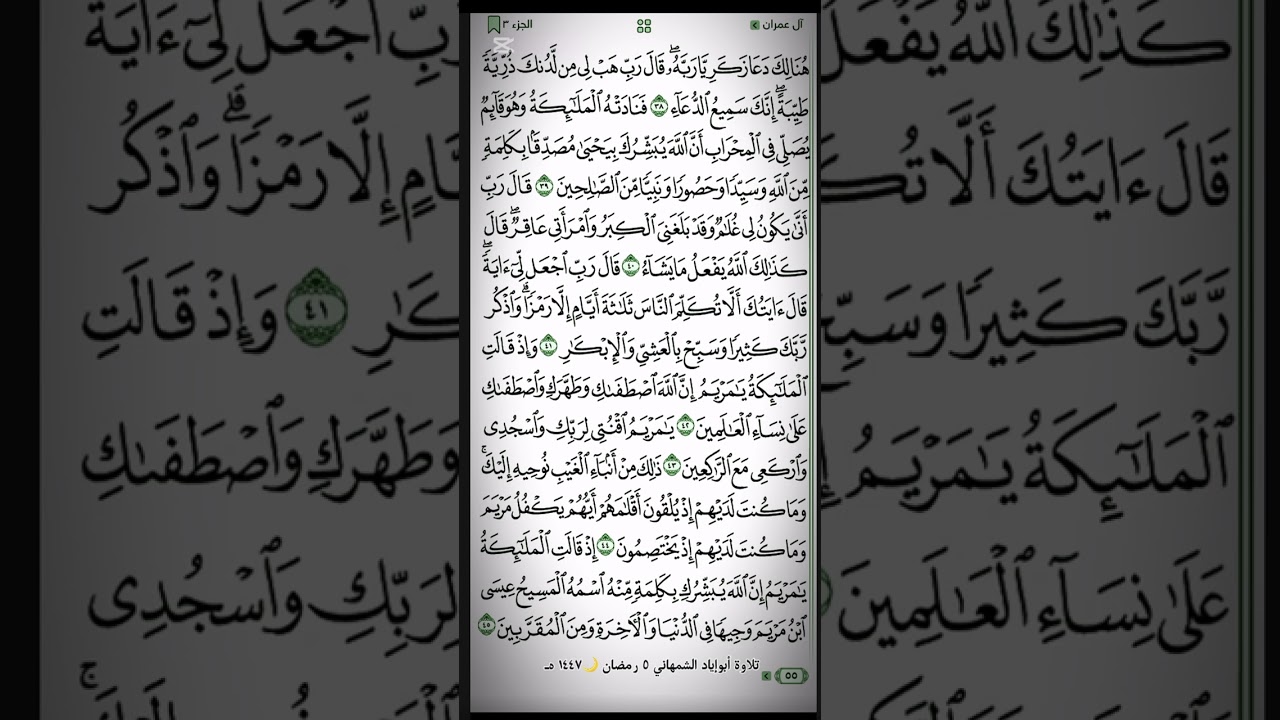 آل عمران
الجزء ٣
هُنَالِكَ دَعَا زَكَرِيَّا رَبَّهُۥۖ قَالَ رَبِّ هَبۡ لِي مِن لَّدُنكَ ذُرِّيَّةٗ
طَيِّبَةًۖ إِنَّكَ سَمِيعُ ٱلدُّعَآءِ ٣٨ فَنَادَتۡهُ ٱلۡمَلَٰٓئِكَةُ وَهُوَ قَآئِمٞ
يُصَلِّي فِي ٱلۡمِحۡرَابِ أَنَّ ٱللَّهَ يُبَشِّرُكَ بِيَحۡيَىٰ مُصَدِّقَۢا بِكَلِمَةٖ
مِّنَ ٱللَّهِ وَسَيِّدٗا وَحَصُورٗا وَنَبِيّٗا مِّنَ ٱلصَّٰلِحِينَ ٣٩ قَالَ رَبِّ
أَنَّىٰ يَكُونُ لِي غُلَٰمٞ وَقَدۡ بَلَغَنِيَ ٱلۡكِبَرُ وَٱمۡرَأَتِي عَاقِرٞۖ قَالَ
كَذَٰلِكَ ٱللَّهُ يَفۡعَلُ مَا يَشَآءُ ٤٠ قَالَ رَبِّ ٱجۡعَل لِّيٓ ءَايَةٗۖ
قَالَ ءَايَتُكَ أَلَّا تُكَلِّمَ ٱلنَّاسَ ثَلَٰثَةَ أَيَّامٍ إِلَّا رَمۡزٗاۗ وَٱذۡكُر
رَّبَّكَ كَثِيرٗا وَسَبِّحۡ بِٱلۡعَشِيِّ وَٱلۡإِبۡكَٰرِ ٤١ وَإِذۡ قَالَتِ
ٱلۡمَلَٰٓئِكَةُ يَٰمَرۡيَمُ إِنَّ ٱللَّهَ ٱصۡطَفَىٰكِ وَطَهَّرَكِ وَٱصۡطَفَىٰكِ
عَلَىٰ نِسَآءِ ٱلۡعَٰلَمِينَ ٤٢ يَٰمَرۡيَمُ ٱقۡنُتِي لِرَبِّكِ وَٱسۡجُدِي
وَٱرۡكَعِي مَعَ ٱلرَّٰكِعِينَ ٤٣ ذَٰلِكَ مِنۡ أَنۢبَآءِ ٱلۡغَيۡبِ نُوحِيهِ إِلَيۡكَۚ
وَمَا كُنتَ لَدَيۡهِمۡ إِذۡ يُلۡقُونَ أَقۡلَٰمَهُمۡ أَيُّهُمۡ يَكۡفُلُ مَرۡيَمَ
وَمَا كُنتَ لَدَيۡهِمۡ إِذۡ يَخۡتَصِمُونَ ٤٤ إِذۡ قَالَتِ ٱلۡمَلَٰٓئِكَةُ
يَٰمَرۡيَمُ إِنَّ ٱللَّهَ يُبَشِّرُكِ بِكَلِمَةٖ مِّنۡهُ ٱسۡمُهُ ٱلۡمَسِيحُ عِيسَى
ٱبۡنُ مَرۡيَمَ وَجِيهٗا فِي ٱلدُّنۡيَا وَٱلۡأٓخِرَةِ وَمِنَ ٱلۡمُقَرَّبِينَ ٤٥
تلاوة أبوإياد الشمهاني ٥ رمضان 🌙١٤٤٧ هـ
٥٥